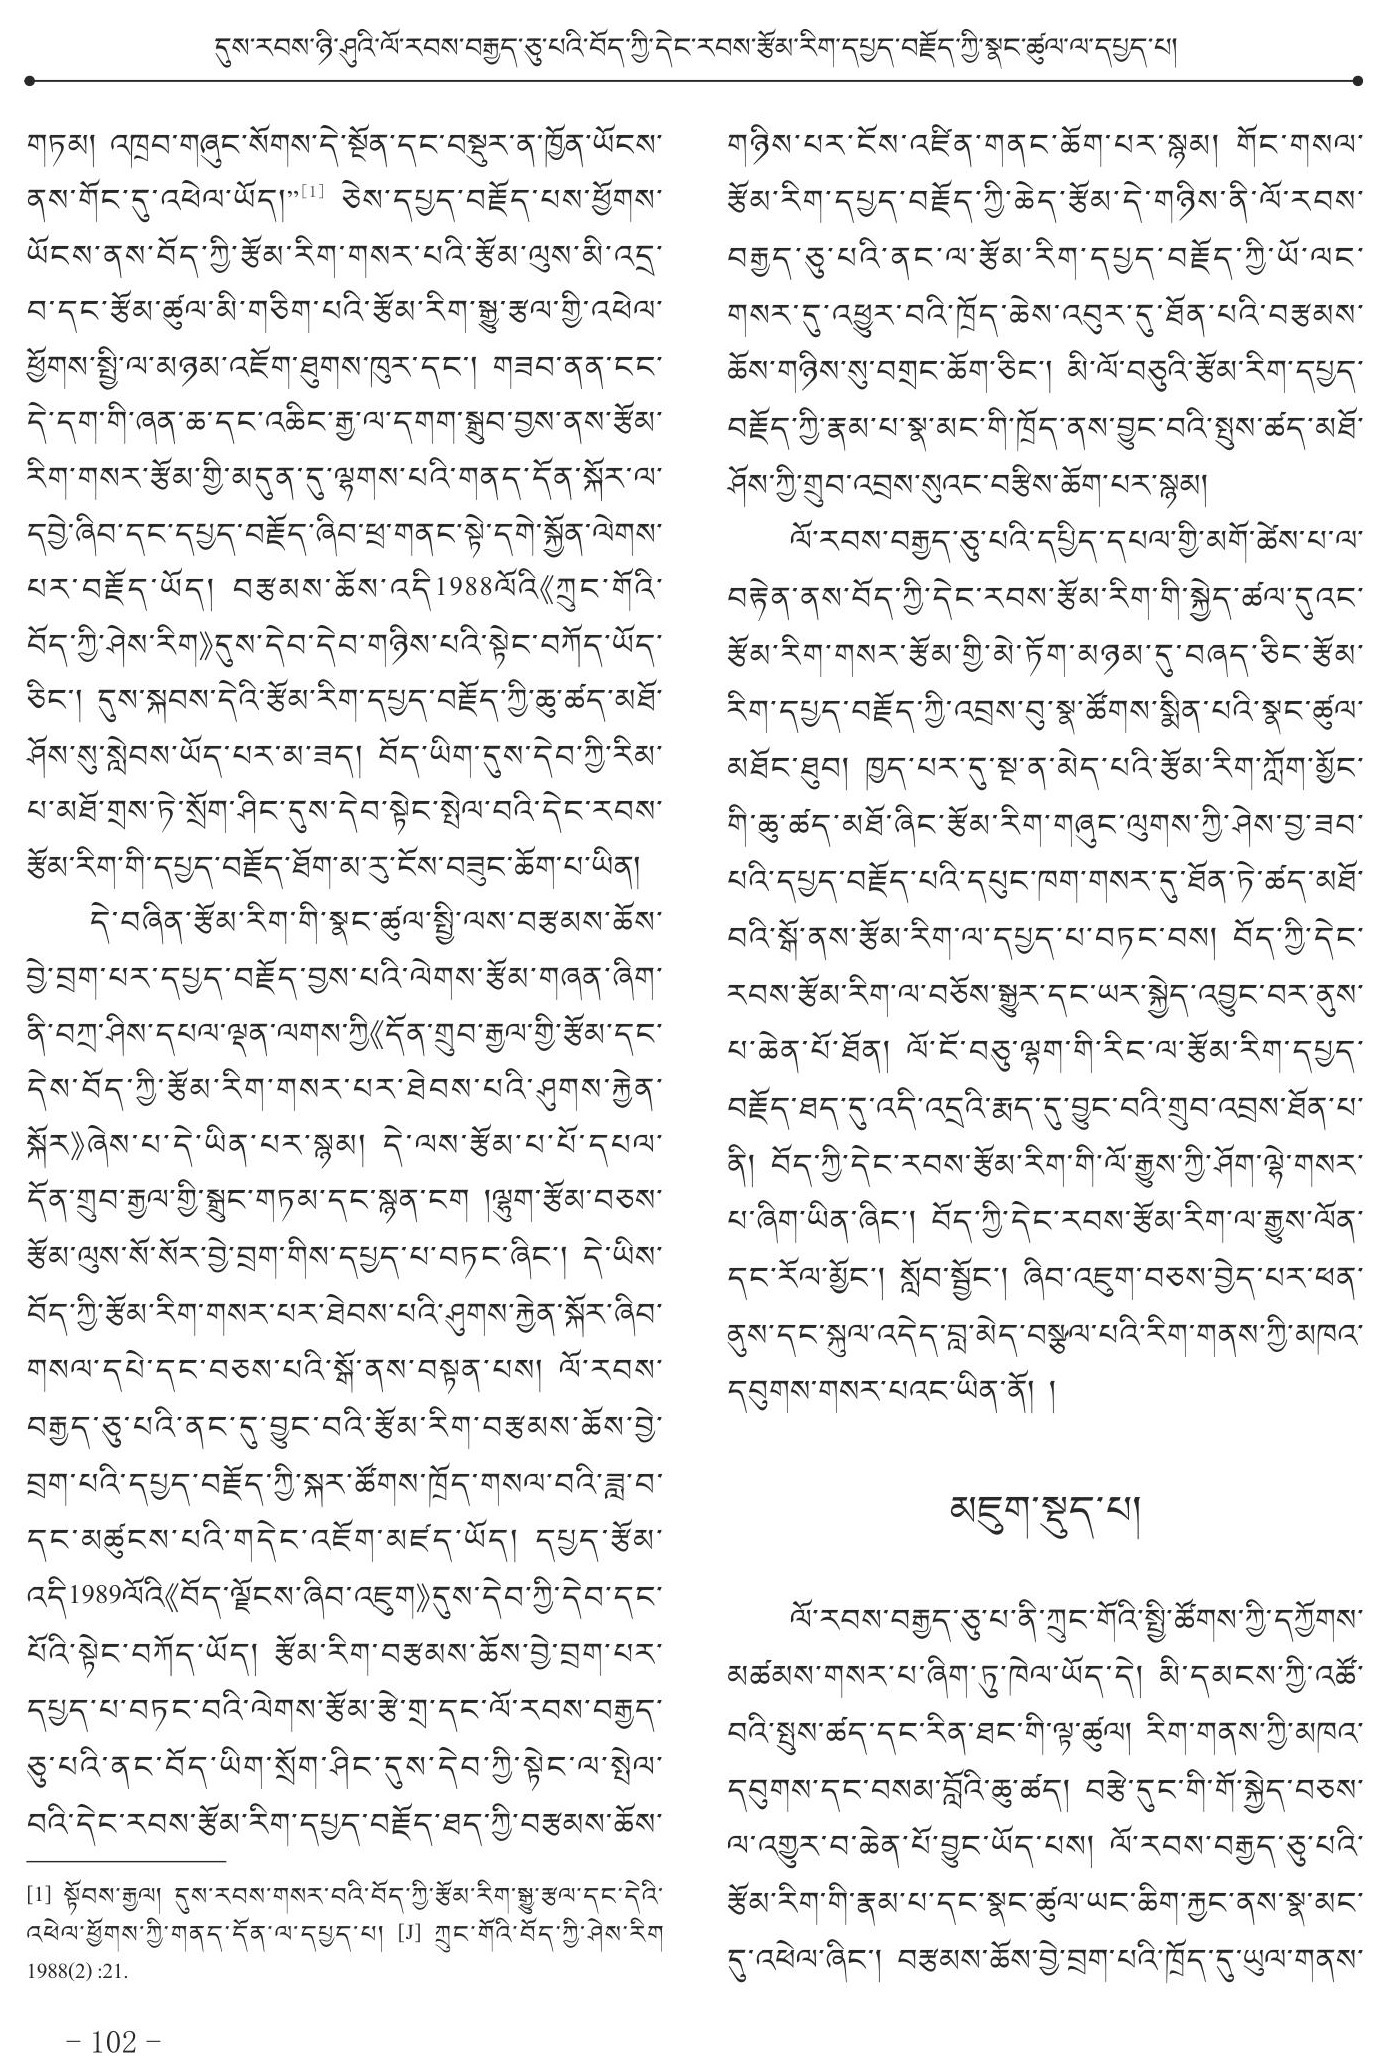 དུས་རབས་ཉི་ཤུའི་ལོ་རབས་བརྒྱད་ཅུ་པའི་བོད་ཀྱི་དེང་རབས་རྩོམ་རིག་དཔྱད་བརྗོད་ཀྱི་སྣང་ཚུལ་ལ་དཔྱད་པ།
གཏམ། འཁྲབ་གཞུང་སོགས་དེ་སྔོན་དང་བསྡུར་ན་ཁྱོན་ཡོངས་
ནས་གོང་དུ་འཕེལ་ཡོད།”[1] ཅེས་དཔྱད་བརྗོད་པས་ཕྱོགས་
ཡོངས་ནས་བོད་ཀྱི་རྩོམ་རིག་གསར་པའི་རྩོམ་ལུས་མི་འདྲ་
བ་དང་རྩོམ་ཚུལ་མི་གཅིག་པའི་རྩོམ་རིག་སྒྱུ་རྩལ་གྱི་འཕེལ་
ཕྱོགས་སྤྱི་ལ་མཉམ་འཇོག་ཐུགས་ཁུར་དང་། གཟབ་ནན་ངང་
དེ་དག་གི་ཞན་ཆ་དང་འཆིང་རྒྱ་ལ་དགག་སྒྲུབ་བྱས་ནས་རྩོམ་
རིག་གསར་རྩོམ་གྱི་མདུན་དུ་ལྷགས་པའི་གནད་དོན་སྐོར་ལ་
དབྱེ་ཞིབ་དང་དཔྱད་བརྗོད་ཞིབ་ཕྲ་གནང་སྟེ་དགེ་སྐྱོན་ལེགས་
པར་བརྗོད་ཡོད། བརྩམས་ཆོས་འདི1988ལོའི《ཀྲུང་གོའི་
བོད་ཀྱི་ཤེས་རིག》དུས་དེབ་དེབ་གཉིས་པའི་སྟེང་བཀོད་ཡོད་
ཅིང་། དུས་སྐབས་དེའི་རྩོམ་རིག་དཔྱད་བརྗོད་ཀྱི་ཆུ་ཚད་མཐོ་
ཤོས་སུ་སླེབས་ཡོད་པར་མ་ཟད། བོད་ཡིག་དུས་དེབ་ཀྱི་རིམ་
པ་མཐོ་གྲས་ཏེ་སྲོག་ཤིང་དུས་དེབ་སྟེང་སྤེལ་བའི་དེང་རབས་
རྩོམ་རིག་གི་དཔྱད་བརྗོད་ཐོག་མ་རུ་ངོས་བཟུང་ཆོག་པ་ཡིན།
དེ་བཞིན་རྩོམ་རིག་གི་སྣང་ཚུལ་སྤྱི་ལས་བརྩམས་ཆོས་
བྱེ་བྲག་པར་དཔྱད་བརྗོད་བྱས་པའི་ལེགས་རྩོམ་གཞན་ཞིག་
ནི་བཀྲ་ཤིས་དཔལ་ལྡན་ལགས་ཀྱི《དོན་གྲུབ་རྒྱལ་གྱི་རྩོམ་དང་
དེས་བོད་ཀྱི་རྩོམ་རིག་གསར་པར་ཐེབས་པའི་ཤུགས་རྐྱེན་
སྐོར》ཞེས་པ་དེ་ཡིན་པར་སྙམ། དེ་ལས་རྩོམ་པ་པོ་དཔལ་
དོན་གྲུབ་རྒྱལ་གྱི་སྒྲུང་གཏམ་དང་སྙན་ངག །ལྷུག་རྩོམ་བཅས་
རྩོམ་ལུས་སོ་སོར་བྱེ་བྲག་གིས་དཔྱད་པ་བཏང་ཞིང་། དེ་ཡིས་
བོད་ཀྱི་རྩོམ་རིག་གསར་པར་ཐེབས་པའི་ཤུགས་རྐྱེན་སྐོར་ཞིབ་
གསལ་དཔེ་དང་བཅས་པའི་སྒོ་ནས་བསྟན་པས། ལོ་རབས་
བརྒྱད་ཅུ་པའི་ནང་དུ་བྱུང་བའི་རྩོམ་རིག་བརྩམས་ཆོས་བྱེ་
བྲག་པའི་དཔྱད་བརྗོད་ཀྱི་སྐར་ཚོགས་ཁྲོད་གསལ་བའི་ཟླ་བ་
དང་མཚུངས་པའི་གདེང་འཇོག་མཛད་ཡོད། དཔྱད་རྩོམ་
འདི1989ལོའི《བོད་ལྗོངས་ཞིབ་འཇུག》དུས་དེབ་ཀྱི་དེབ་དང་
པོའི་སྟེང་བཀོད་ཡོད། རྩོམ་རིག་བརྩམས་ཆོས་བྱེ་བྲག་པར་
དཔྱད་པ་བཏང་བའི་ལེགས་རྩོམ་རྩེ་གྲ་དང་ལོ་རབས་བརྒྱད་
ཅུ་པའི་ནང་བོད་ཡིག་སྲོག་ཤིང་དུས་དེབ་ཀྱི་སྟེང་ལ་སྤེལ་
བའི་དེང་རབས་རྩོམ་རིག་དཔྱད་བརྗོད་ཐད་ཀྱི་བརྩམས་ཆོས་
[1] སྟོབས་རྒྱལ། དུས་རབས་གསར་བའི་བོད་ཀྱི་རྩོམ་རིག་སྒྱུ་རྩལ་དང་དེའི་
འཕེལ་ཕྱོགས་ཀྱི་གནད་དོན་ལ་དཔྱད་པ། [J] ཀྲུང་གོའི་བོད་ཀྱི་ཤེས་རིག
1988(2) :21.
གཉིས་པར་ངོས་འཛིན་གནང་ཆོག་པར་སྙམ། གོང་གསལ་
རྩོམ་རིག་དཔྱད་བརྗོད་ཀྱི་ཆེད་རྩོམ་དེ་གཉིས་ནི་ལོ་རབས་
བརྒྱད་ཅུ་པའི་ནང་ལ་རྩོམ་རིག་དཔྱད་བརྗོད་ཀྱི་ཡོ་ལང་
གསར་དུ་འཕྱུར་བའི་ཁྲོད་ཆེས་འབུར་དུ་ཐོན་པའི་བརྩམས་
ཆོས་གཉིས་སུ་བགྲང་ཆོག་ཅིང་། མི་ལོ་བཅུའི་རྩོམ་རིག་དཔྱད་
བརྗོད་ཀྱི་རྣམ་པ་སྣ་མང་གི་ཁྲོད་ནས་བྱུང་བའི་སྤུས་ཚད་མཐོ་
ཤོས་ཀྱི་གྲུབ་འབྲས་སུའང་བརྩིས་ཆོག་པར་སྙམ།
ལོ་རབས་བརྒྱད་ཅུ་པའི་དཔྱིད་དཔལ་གྱི་མགོ་ཚེས་པ་ལ་
བརྟེན་ནས་བོད་ཀྱི་དེང་རབས་རྩོམ་རིག་གི་སྐྱེད་ཚལ་དུའང་
རྩོམ་རིག་གསར་རྩོམ་གྱི་མེ་ཏོག་མཉམ་དུ་བཞད་ཅིང་རྩོམ་
རིག་དཔྱད་བརྗོད་ཀྱི་འབྲས་བུ་སྣ་ཚོགས་སྨིན་པའི་སྣང་ཚུལ་
མཐོང་ཐུབ། ཁྱད་པར་དུ་སྔ་ན་མེད་པའི་རྩོམ་རིག་ཀློག་མྱོང་
གི་ཆུ་ཚད་མཐོ་ཞིང་རྩོམ་རིག་གཞུང་ལུགས་ཀྱི་ཤེས་བྱ་ཟབ་
པའི་དཔྱད་བརྗོད་པའི་དཔུང་ཁག་གསར་དུ་ཐོན་ཏེ་ཚད་མཐོ་
བའི་སྒོ་ནས་རྩོམ་རིག་ལ་དཔྱད་པ་བཏང་བས། བོད་ཀྱི་དེང་
རབས་རྩོམ་རིག་ལ་བཅོས་སྒྱུར་དང་ཡར་སྐྱེད་འབྱུང་བར་ནུས་
པ་ཆེན་པོ་ཐོན། ལོ་ངོ་བཅུ་ལྷག་གི་རིང་ལ་རྩོམ་རིག་དཔྱད་
བརྗོད་ཐད་དུ་འདི་འདྲའི་རྨད་དུ་བྱུང་བའི་གྲུབ་འབྲས་ཐོན་པ་
ནི། བོད་ཀྱི་དེང་རབས་རྩོམ་རིག་གི་ལོ་རྒྱུས་ཀྱི་ཤོག་ལྷེ་གསར་
པ་ཞིག་ཡིན་ཞིང་། བོད་ཀྱི་དེང་རབས་རྩོམ་རིག་ལ་རྒྱུས་ལོན་
དང་རོལ་མྱོང་། སློབ་སྦྱོང་། ཞིབ་འཇུག་བཅས་བྱེད་པར་ཕན་
ནུས་དང་སྐུལ་འདེད་བླ་མེད་བསྩལ་པའི་རིག་གནས་ཀྱི་མཁའ་
དབུགས་གསར་པའང་ཡིན་ནོ། །
མཇུག་སྡུད་པ།
ལོ་རབས་བརྒྱད་ཅུ་པ་ནི་ཀྲུང་གོའི་སྤྱི་ཚོགས་ཀྱི་དཀྱོགས་
མཚམས་གསར་པ་ཞིག་ཏུ་ཁེལ་ཡོད་དེ། མི་དམངས་ཀྱི་འཚོ་
བའི་སྤུས་ཚད་དང་རིན་ཐང་གི་ལྟ་ཚུལ། རིག་གནས་ཀྱི་མཁའ་
དབུགས་དང་བསམ་བློའི་ཆུ་ཚད། བརྩེ་དུང་གི་གོ་སྐྱེད་བཅས་
ལ་འགྱུར་བ་ཆེན་པོ་བྱུང་ཡོད་པས། ལོ་རབས་བརྒྱད་ཅུ་པའི་
རྩོམ་རིག་གི་རྣམ་པ་དང་སྣང་ཚུལ་ཡང་ཆིག་རྐྱང་ནས་སྣ་མང་
དུ་འཕེལ་ཞིང་། བརྩམས་ཆོས་བྱེ་བྲག་པའི་ཁྲོད་དུ་ཡུལ་གནས་
– 102 –